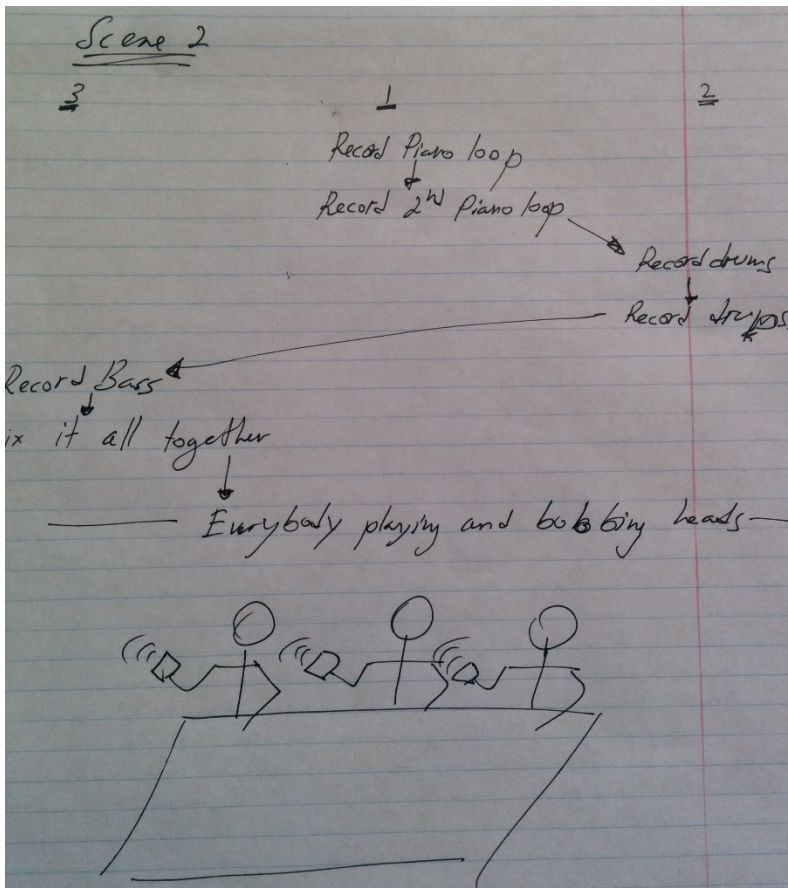 Scene 2
3 1 2
Record Piano loop
Record 2nd Piano loop
Record drums
Record
Record Bass
ix it all together
Everybody playing and bobbing heads